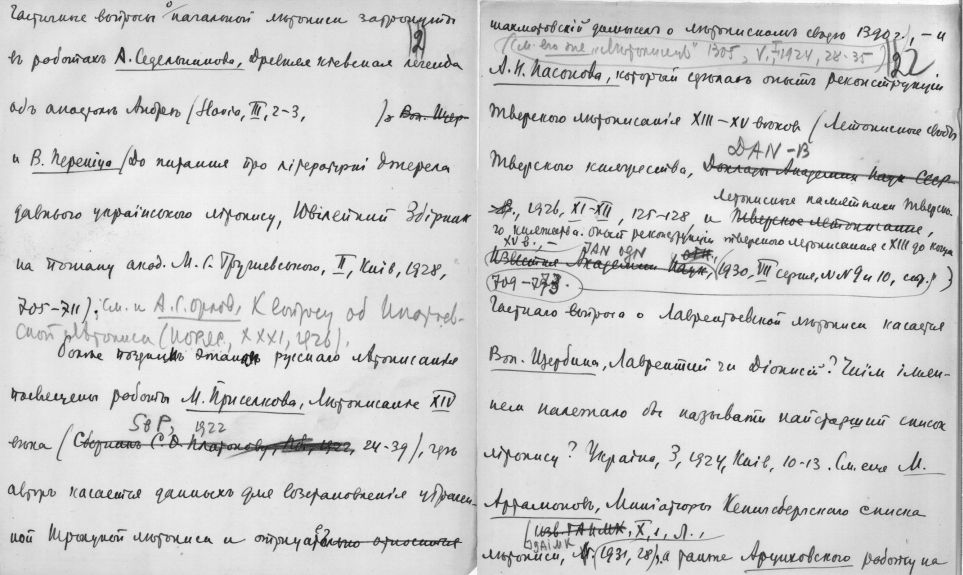 Частичные вопросы о начальной лѣтописи затронуты
2
въ работахъ А. Седельникова, Древняя киевская легенда
объ апостолѣ Андреѣ (Slavia, III, 2-3, ),
и В. Перетца (До питання про літературні джерела
давнього українського літопису, Ювілейний Збірник
на пошану акад. М. С. Грушевського, II, Київ, 1928,
705-711). См. и А. С. Орлов, К вопросу об Ипатьев-
ской лѣтописи (ИОРЯС, XXXI, 1926).
Более поздним этапам русскаго лѣтописания
посвещены работы М. Приселкова, Лѣтописание XIV
SбP, 1922
вѣка (Сборникъ С. Ѳ. Платонову, 1922, 24-39), гдѣ
авторъ касается данныхъ для возстановления утрачен-
ной Троицкой лѣтописи и
шахматовскій домыселъ о лѣтописномъ сводѣ 1390 г., - и
(См. его же „Лѣтописецъ" 1305, V, I, 1924, 28-35)
22
А. Н. Насонова, который сдѣлалъ опытъ реконструкціи
Тверского лѣтописанія XIII-XV вѣковъ (Лѣтописные своды
DAN-B
Тверского княжества, Доклады Академии Наук СССР
Летописные памятники Тверско-
1926, XI-XII, 125-128 и Тверское лѣтописание,
го княжества. Опыт реконструкции тверского лѣтописания с XIII до конца
XV в., -
ДАН ОГН
Известия Академии Наук, 1930, VII серия, NN 9 и 10, стр.
709-773
Частнаго вопроса о Лаврентьевской лѣтописи касается
Вол. Щербина, Лаврентий чи Діонисій? Чиїм імен-
нем належало би називати найстарший список
літопису? Україна, 3, 1924, Київ, 10-13. См. еще М.
Артамоновъ, Миниатюры Кенигсбергскаго списка
(Изв. ГАИМК, X, 1, Л.,
ИГАИМК
лѣтописи, (1931, 28), а ранѣе Арциховского работу на